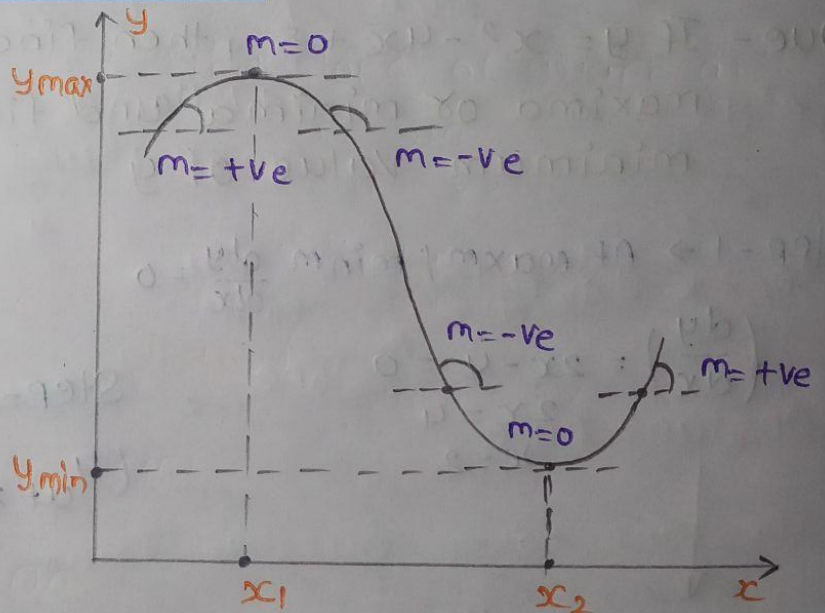 y
m=0
ymax
m=+ve
m=-ve
m=-ve
m=+ve
m=0
ymin
x1
x2
x